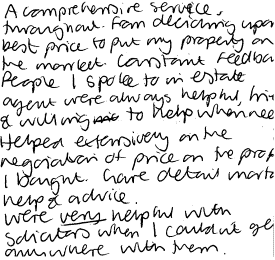 A comprehensive service,
throughout. From deciding upon
best price to put my property on
the market. Constant Feedbac
People I spoke to in estate
agent were always helpful, fri
& willing to help when nee
Helped extensively on the
negotiation of price on the prop
I bought. Gave detail mort
help & advice.
Were very helpful with
solicitors when I couldnt ge
anywhere with them.